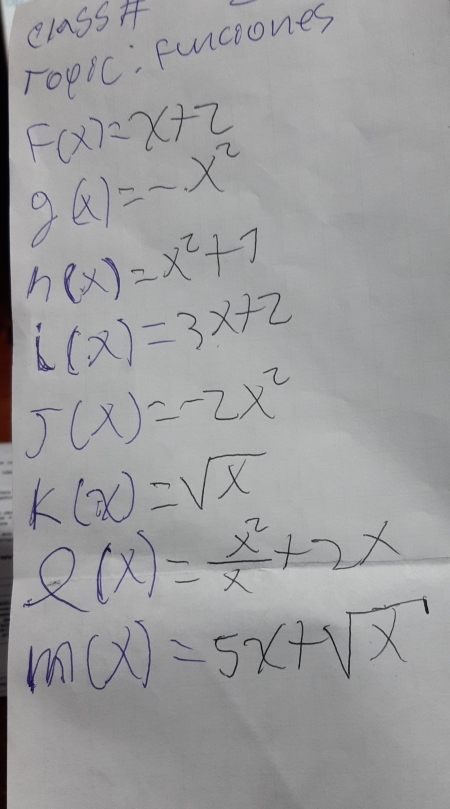 class#
Topic: Funciones
F(x)=x+2
g(x)=-x²
h(x)=x²+1
i(x)=3x+2
J(x)=-2x²
K(x)=√x
l(x)=x²/x+2x
m(x)=5x+√x